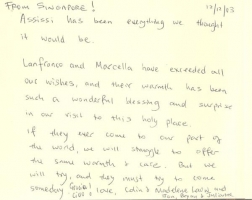 FROM SINGAPORE!
12/11/93
Assissi has been everything we thought
it would be.
Lanfranco and Marcella have exceeded all
our wishes, and their warmth has been
such a wonderful blessing and surprise
in our visit to this holy place.
If they ever come to our part of
the world, we will struggle to offer
the same warmth & care. But we
will try, and they must try to come
someday. love, Colin &